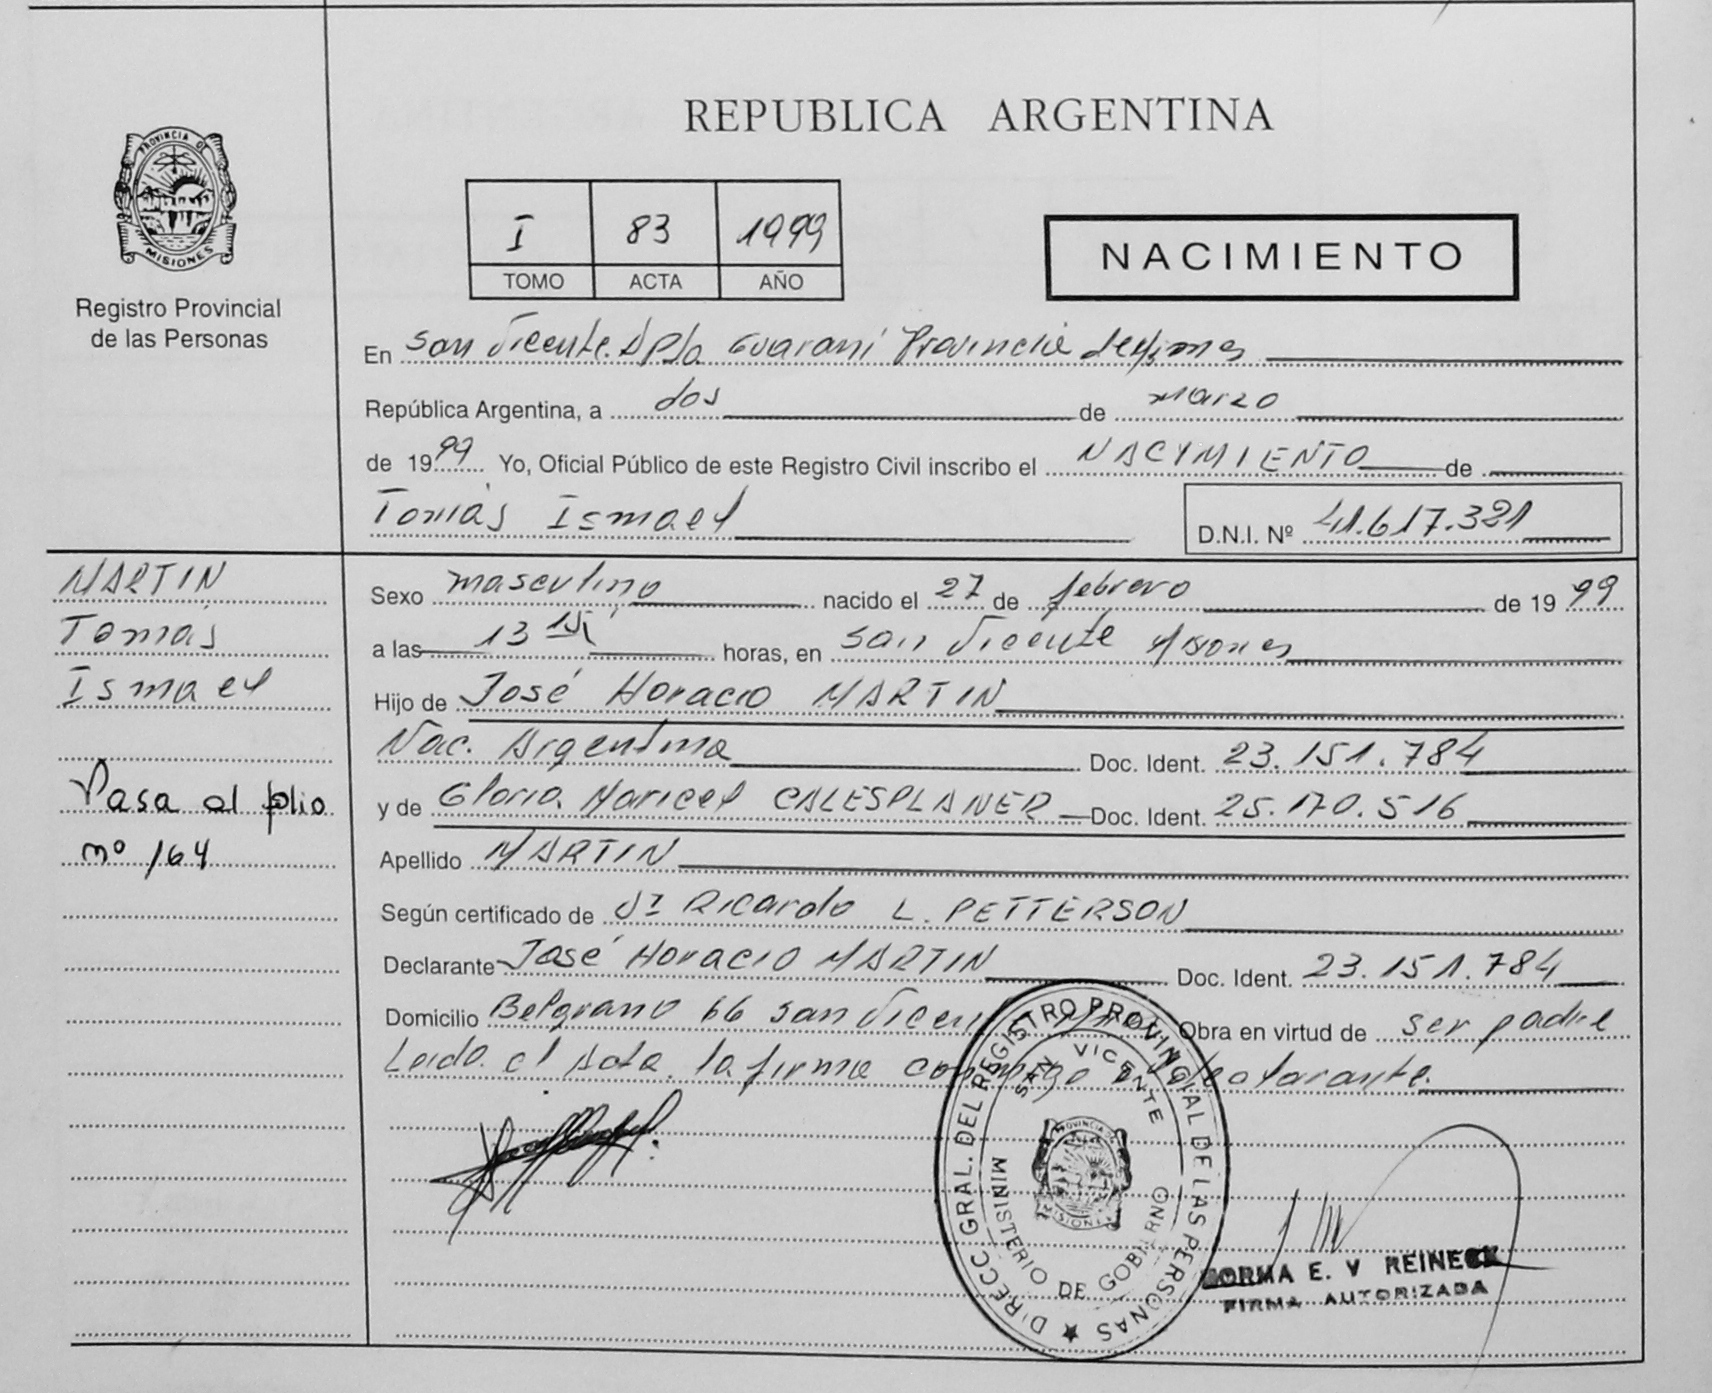 PROVINCIA DE
MISIONES
Registro Provincial
de las Personas
REPUBLICA ARGENTINA
I 83 1999
TOMO ACTA AÑO
NACIMIENTO
En San Vicente Dpto Guaraní Provincia Misiones
República Argentina, a dos de Marzo
de 1999 Yo, Oficial Público de este Registro Civil inscribo el NACYMIENTO de
Tomás Ismael D.N.I. Nº 41.617.321
MARTIN
Tomás
Ismael
Pasa al folio
nº 164
Sexo masculino nacido el 27 de febrero de 1999
a las 13 15 horas, en San Vicente Misiones
Hijo de José Horacio MARTIN
Nac. Argentina Doc. Ident. 23.151.784
y de Gloria Maricel CALESPLANER Doc. Ident. 25.170.516
Apellido MARTIN
Según certificado de Dr Ricardo L. PETTERSON
Declarante José Horacio MARTIN Doc. Ident. 23.151.784
Domicilio Belgrano 66 San Vicente Obra en virtud de ser padre
Leída el Acta la firma conmigo el declarante
DIRECC GRAL. DEL REGISTRO PROVINCIAL DE LAS PERSONAS
SAN VICENTE
MINISTERIO DE GOBIERNO
PROVINCIA DE
MISIONES
NORMA E. V REINECK
FIRMA AUTORIZADA